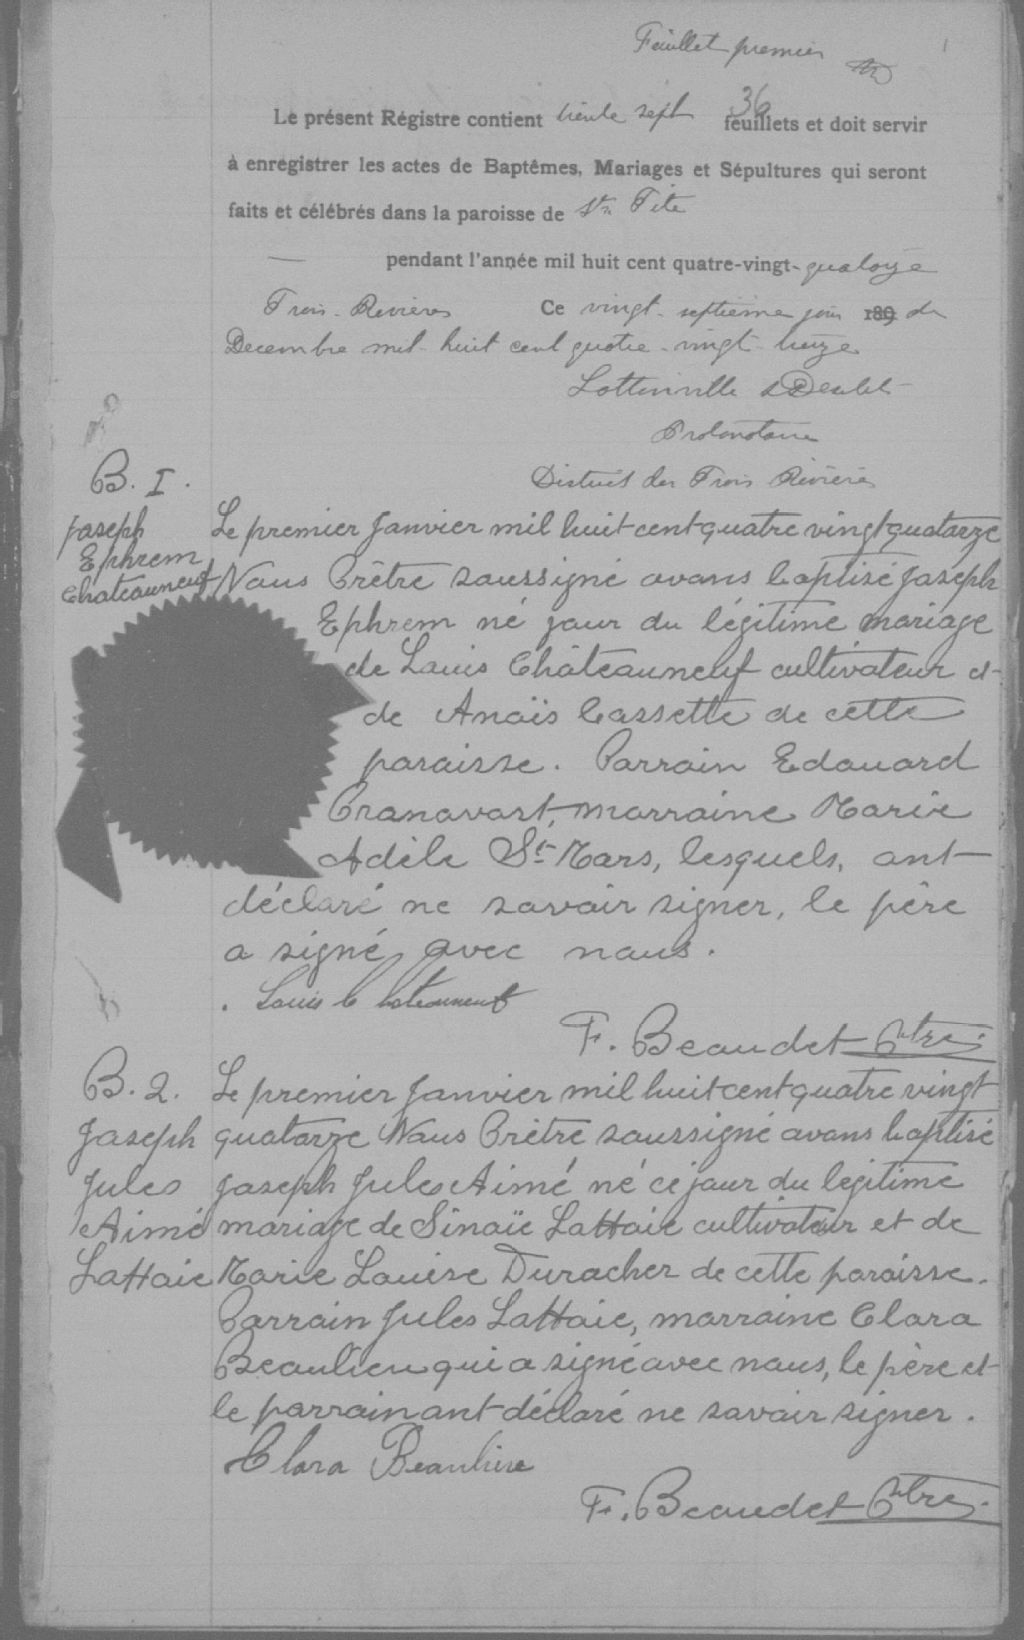 Feuillet premier
Le présent Régistre contient trente sept 36 feuillets et doit servir
à enregistrer les actes de Baptêmes, Mariages et Sépultures qui seront
faits et célébrés dans la paroisse de Ste Tite
pendant l'année mil huit cent quatre-vingt-quatorze
Trois-Rivières Ce vingt-septième jour 189 de
Decembre mil-huit cent quatre-vingt-treize
Lottinville &
Protonotaire
District des Trois Rivières
B. 1.
Joseph
Ephrem
Chateauneuf
Le premier Janvier mil huit cent quatre vingt quatorze
Nous Prêtre soussigné avons baptisé Joseph
Ephrem né jour du légitime mariage
de Louis Châteauneuf cultivateur et
de Anaïs Cossette de cette
paroisse. Parrain Edouard
Pronovost, marraine Marie
Adèle St-Mars, lesquels, ont
déclaré ne savoir signer, le père
a signé avec nous.
Louis Chateauneuf
F. Beaudet Ptre.
B. 2.
Joseph
Jules
Aimé
LaHaie
Le premier Janvier mil huit cent quatre vingt
quatorze Nous Prêtre soussigné avons baptisé
Joseph Jules Aimé né ce jour du légitime
mariage de Sinaïe LaHaie cultivateur et de
Marie Louise Durocher de cette paroisse.
Parrain Jules LaHaie, marraine Clara
Beaulieu qui a signé avec nous, le père et
le parrain ont déclaré ne savoir signer.
Clara Beaulieu
F. Beaudet Ptre.